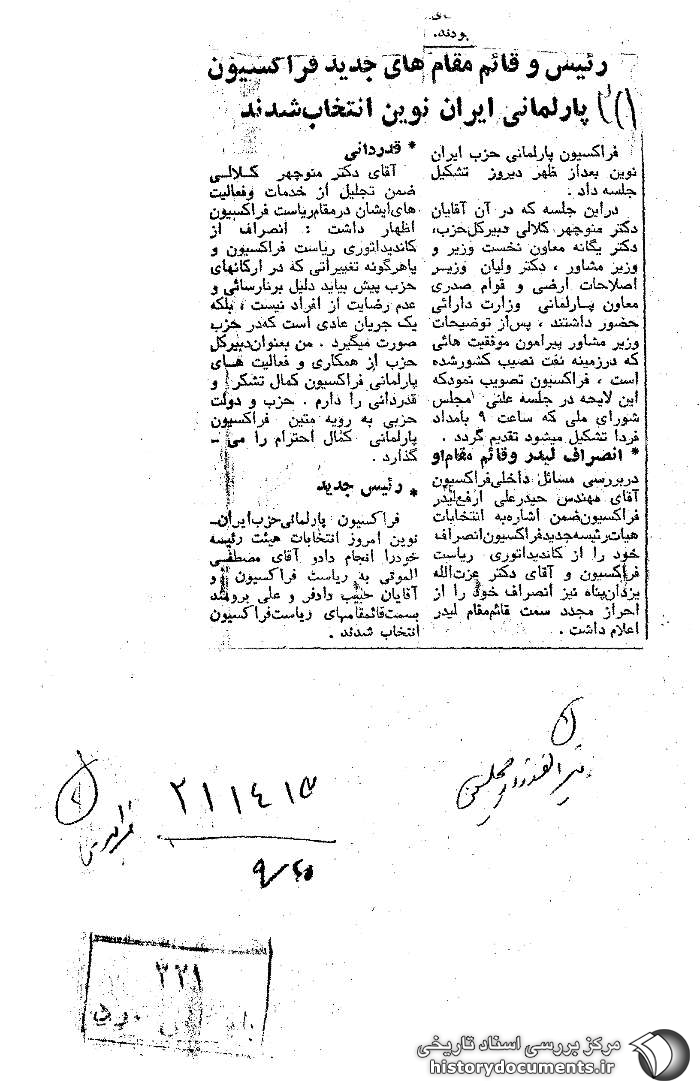 بودند.
رئیس و قائم مقام های جدید فراکسیون
پارلمانی ایران نوین انتخاب‌شدند
فراکسیون پارلمانی حزب ایران
نوین بعداز ظهر دیروز تشکیل
جلسه داد .
دراین جلسه که در آن آقایان
دکتر منوچهر کلالی دبیرکل‌حزب،
دکتر یگانه معاون نخست وزیر و
وزیر مشاور ، دکتر ولیان وزیر
اصلاحات ارضی و قوام صدری
معاون پارلمانی وزارت دارائی
حضور داشتند ، پس‌از توضیحات
وزیر مشاور پیرامون موفقیت هائی
که درزمینه نفت نصیب کشورشده
است ، فراکسیون تصویب نمودکه
این لایحه در جلسه علنی مجلس
شورای ملی که ساعت ۹ بامداد
فردا تشکیل میشود تقدیم گردد .
* انصراف لیدر وقائم مقام‌او
دربررسی مسائل داخلی‌فراکسیون
آقای مهندس حیدرعلی ارفع‌لیدر
فراکسیون‌ضمن اشاره‌به انتخابات
هیات‌رئیسه‌جدیدفراکسیون‌انصراف
خود را از کاندیداتوری ریاست
فراکسیون و آقای دکتر عزت‌الله
یزدان‌پناه نیز انصراف خود را از
احراز مجدد سمت قائم‌مقام لیدر
اعلام داشت .
* قدردانی
آقای دکتر منوچهر کلالی
ضمن تجلیل از خدمات وفعالیت
های‌ایشان درمقام‌ریاست فراکسیون
اظهار داشت : انصراف از
کاندیداتوری ریاست فراکسیون و
یاهرگونه تغییراتی که در ارکانهای
حزب پیش بیاید دلیل برنارسائی و
عدم رضایت از افراد نیست ، بلکه
یک جریان عادی است که‌در حزب
صورت میگیرد . من بعنوان‌دبیرکل
حزب از همکاری و فعالیت های
پارلمانی فراکسیون کمال تشکر و
قدردانی را دارم . حزب و دولت
حزبی به رویه متین فراکسیون
پارلمانی کمال احترام را می -
گذارد .
* رئیس جدید
فراکسیون پارلمانی‌حزب‌ایران-
نوین امروز انتخابات هیئت رئیسه
خودرا انجام دادو آقای مصطفی
الموتی به ریاست فراکسیون و
آقایان حبیب دادفر و علی برومند
بسمت‌قائمقامهای ریاست‌فراکسیون
انتخاب شدند .
۳۲۱
مرکز بررسی اسناد تاریخی
historydocuments.ir